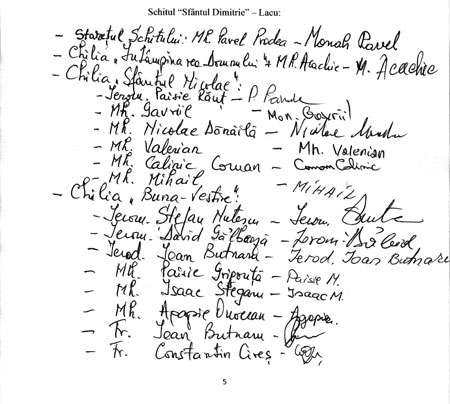 Schitul "Sfântul Dimitrie" – Lacu:
- Starețul Schitului: Mh. Pavel Prodea - Monah Pavel
- Chilia „Întâmpinarea Domnului" Mh. Acachie - M. Acachie
- Chilia „Sfântul Nicolae":
- Ierom. Paisie Răuț - P.
- Mh. Gavriil - Mon. Gavriil
- Mh. Nicolae Dănăilă - Nicolae
- Mh. Valerian - Mh. Valerian
- Mh. Calinic Coman - Coman Calinic
- Mh. Mihail - MIHAIL
- Chilia „Buna-Vestire":
- Ierom. Ștefan Nuțescu - Ierom.
- Ierom. David Gălbează - Ierom.
- Ierod. Ioan Butnaru - Ierod. Ioan Butnaru
- Mh. Paisie - Paisie M.
- Mh. Isaac Stegaru - Isaac M.
- Mh. Agapie - Agapie
- Fr. Ioan Butnaru -
- Fr. Constantin Cireș -
5